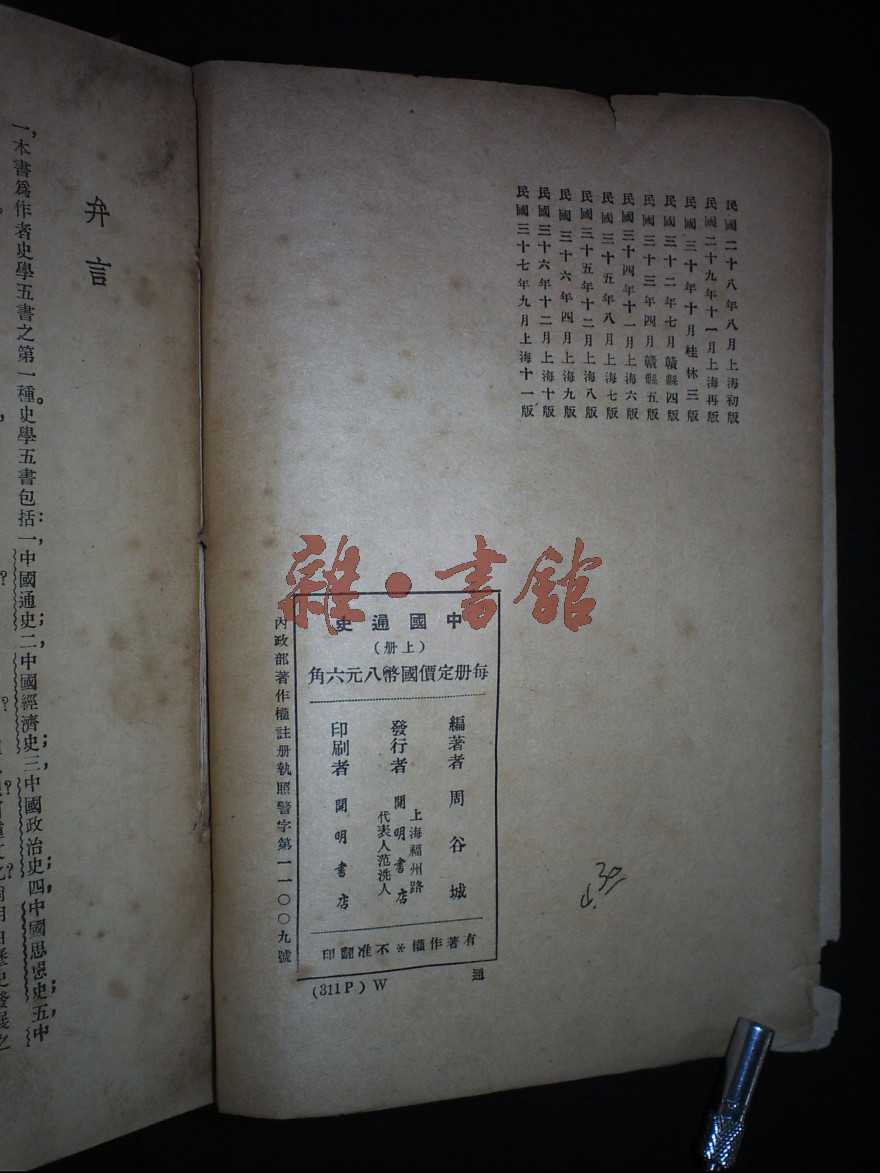 民國二十八年八月上海初版
民國二十九年十一月上海再版
民國三十年十月桂林三版
民國三十二年七月贛縣四版
民國三十三年四月贛縣五版
民國三十四年十一月上海六版
民國三十五年八月上海七版
民國三十五年十二月上海八版
民國三十六年四月上海九版
民國三十六年十二月上海十版
民國三十七年九月上海十一版
雜·書館
中國通史
(上册)
每册定價國幣八元六角
編著者 周谷城
發行者 上海福州路
開明書店
代表人范洗人
印刷者 開明書店
有著作權*不准翻印
內政部著作權註册執照警字第一一〇〇九號
(311P) W
通
弁言
一,本書爲作者史學五書之第一種。史學五書包括:一,中國通史;二,中國經濟史;三,中國政治史;四,中國思想史;五,中